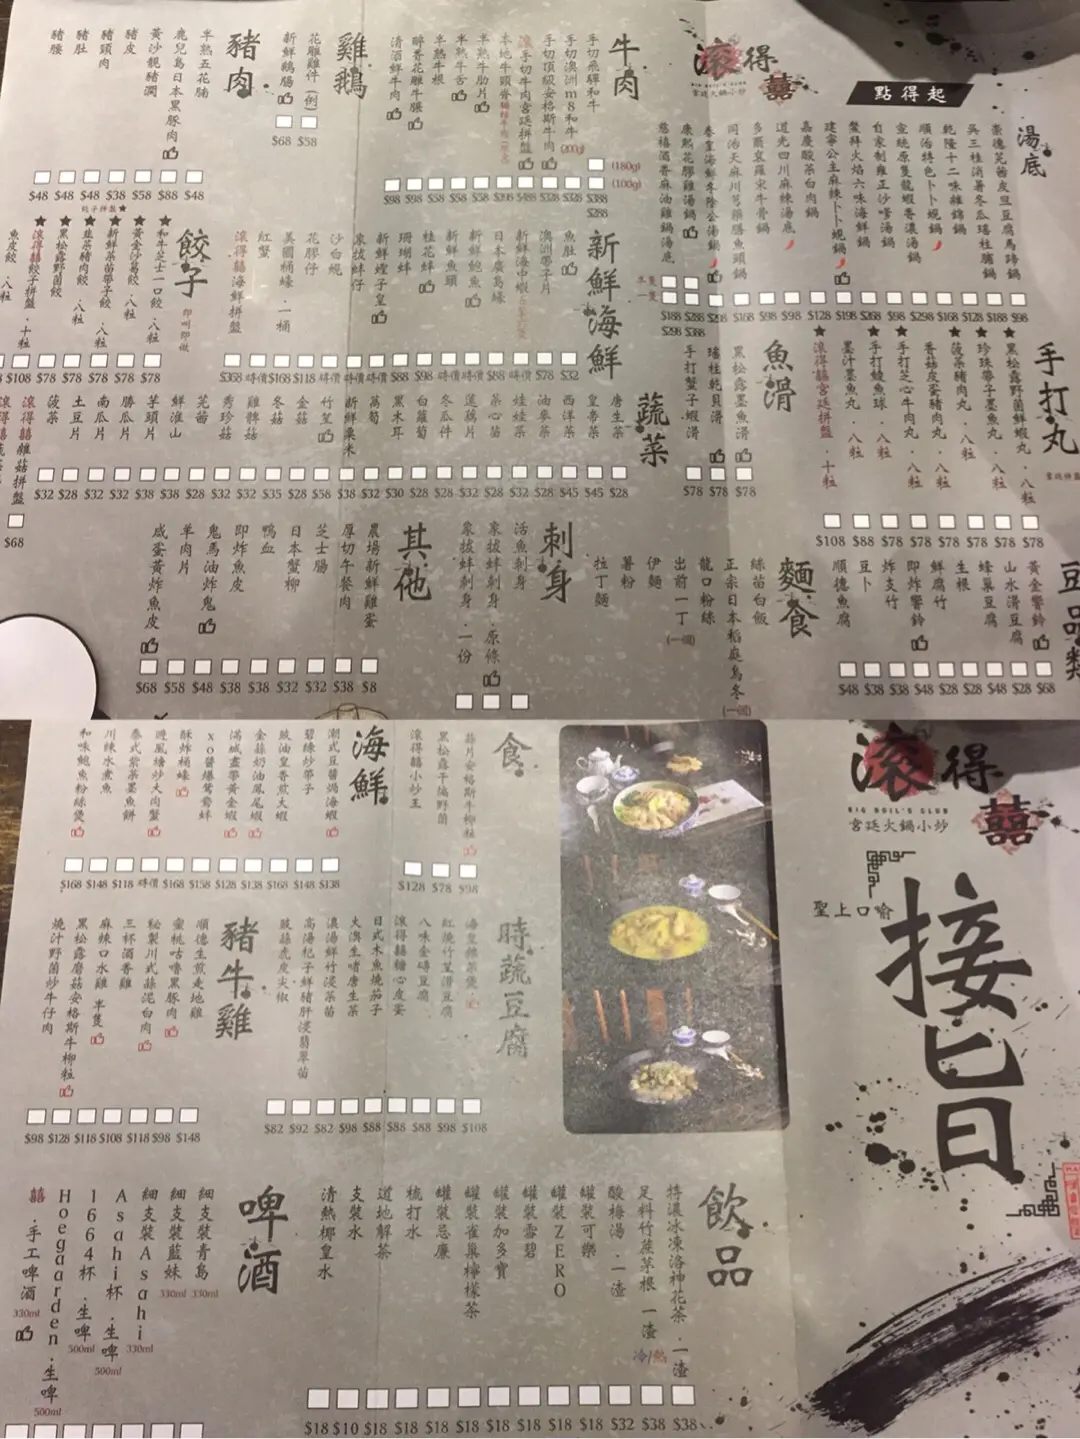 滾得囍
BIG BOIL'S CLUB
宮廷火鍋小炒
點得起
湯底
崇德芫茜皮旦豆腐馬蹄鍋
吳三桂消暑冬瓜瑤柱脯鍋
乾隆十二味雜錦鍋
順治特色卜卜蜆鍋
宣統原隻龍蝦香濃湯鍋
自家制雍正沙嗲湯鍋
鰲拜火焰六味海鮮鍋
建寧公主麻辣卜卜蜆鍋
嘉慶酸菜白肉鍋
道光四川麻辣湯底
多爾袞羅宋牛骨鍋
同治天麻川芎燉膳魚頭鍋
康熙花膠雞湯鍋
慈禧酒香麻油雞鍋湯底
半隻
一隻
$98 $188 $128 $168 $298 $98 $268 $198 $128 $98 $98 $168 $288 $288 $188
$388 $298
牛肉
手切飛驒和牛
手切澳洲m8和牛(200g)
手切頂級安格斯牛肉
滾手切牛肉宮廷拼盤
半熟牛肋片
半熟牛舌
半熟牛根
醉香花雕牛腱
清酒鮮牛肉
(180g)
(100g)
$388
$288
雞鵝
花雕雞件(例)
新鮮鵝腸
$68 $58
豬肉
半熟五花腩
鹿兒島日本黑豚肉
黃沙靚豬潤
豬皮
豬頸肉
豬肚
豬腰
$48 $48 $48 $38 $58 $88 $48
手打丸
黑松露野菌鮮蝦丸．八粒
珍珠帶子墨魚丸．八粒
菠菜豬肉丸．八粒
香菇皮蛋豬肉丸．八粒
手打芝心牛肉丸．八粒
手打鯪魚球．八粒
墨汁墨魚丸．八粒
滾得囍宮廷拼盤．十粒
$108 $88 $78 $78 $78 $78 $78 $78
魚滑
黑松露墨魚滑
瑤柱乾貝滑
手打蟹子蝦滑
$78 $78 $78
新鮮海鮮
魚肚
澳洲帶子片
新鮮海中蝦
日本廣島蠔
新鮮鮑魚
新鮮魚頭
桂花蚌
珊瑚蚌
新鮮蟶子皇
象拔蚌仔
沙白蜆
花膠仔
美國桶蠔．一桶
紅蟹
滾得囍海鮮拼盤
$368 時價 $168 $118 時價 時價 時價 $88 $98 時價 時價 $88 時價 $78 $32
餃子
即叫即做
餃子拼盤★
和牛芝士一口餃．八粒
黃金沙葛餃．八粒
新鮮菜苗帶子餃．八粒
韭菜豬肉餃．八粒
黑松露野菌餃．八粒
滾得囍餃子拼盤．十粒
魚皮餃．八粒
$108 $78 $78 $78 $78 $78
蔬菜
唐生菜
皇帝菜
西洋菜
油麥菜
娃娃菜
菜心苗
蓮藕片
冬瓜件
白蘿蔔
黑木耳
萵筍
新鮮粟米
竹笙
金菇
冬菇
雞髀菇
秀珍菇
芫茜
鮮淮山
芋頭片
勝瓜片
南瓜片
土豆片
菠菜
滾得囍雜菇拼盤
$32 $28 $32 $32 $38 $38 $28 $32 $32 $35 $28 $58 $38 $32 $30 $28 $28 $32 $28 $32 $28 $45 $45 $28
$68
豆品類
黃金響鈴
山水滑豆腐
蜂巢豆腐
生根
鮮腐竹
即炸響鈴
炸支竹
豆卜
順德魚腐
$48 $38 $38 $48 $28 $28 $48 $28 $68
麵食
絲苗白飯
正宗日本稻庭烏冬(一個)
龍口粉絲
出前一丁(一個)
伊麵
薯粉
拉丁麵
刺身
活魚刺身
象拔蚌刺身．原條
象拔蚌刺身．一份
其他
農場新鮮雞蛋
厚切午餐肉
芝士腸
日本蟹柳
鴨血
即炸魚皮
鬼馬油炸鬼
羊肉片
咸蛋黃炸魚皮
$68 $58 $48 $38 $38 $32 $32 $38 $8
滾得囍
BIG BOIL'S CLUB
宮廷火鍋小炒
聖上口喻
接旨
食
蒜片安格斯牛柳粒
黑松露干煸野菌
滾得囍小炒王
$128 $78 $98
海鮮
潮式豆醬焗海蝦
碧綠炒帶子
豉油皇香煎大蝦
金蒜奶油鳳尾蝦
滿城盡帶黃金蝦
xo醬爆鴛鴦蚌
酥炸桶蠔
避風塘炒大肉蟹
泰式紫菜墨魚餅
川辣水煮魚
和味鮑魚粉絲煲
$168 $148 $118 時價 $168 $158 $128 $138 $168 $148 $138
時蔬豆腐
海皇雜菜煲
紅燒竹笙滑豆腐
八味金磚豆腐
滾得囍糖心皮蛋
日式木魚燒茄子
大澳生啫唐生菜
濃湯鮮竹浸菜苗
高湯杞子鮮豬肝浸翡翠苗
豉蒜虎皮尖椒
$82 $92 $82 $98 $88 $88 $88 $98 $108
豬牛雞
順德生煎走地雞
蜜桃咕嚕黑豚肉
秘製川式蒜泥白肉
三杯酒香雞
麻辣口水雞 半隻
黑松露蘑菇安格斯牛柳粒
燒汁野菌炒牛仔肉
$98 $128 $118 $108 $118 $98 $148
飲品
特濃冰凍洛神花茶．一渣
足料竹蔗茅根 一渣 冷/熱
酸梅湯．一渣
罐裝可樂
罐裝ZERO
罐裝雪碧
罐裝加多寶
罐裝雀巢檸檬茶
罐裝忌廉
梳打水
道地解茶
支裝水
清熱椰皇水
$18 $10 $18 $18 $18 $18 $18 $18 $18 $18 $32 $38 $38
啤酒
細支裝青島 330ml
細支裝藍妹 330ml
細支裝Asahi 330ml
Asahi杯．生啤 500ml
1664杯．生啤 500ml
Hoegaarden．生啤 500ml
囍．手工啤酒 330ml